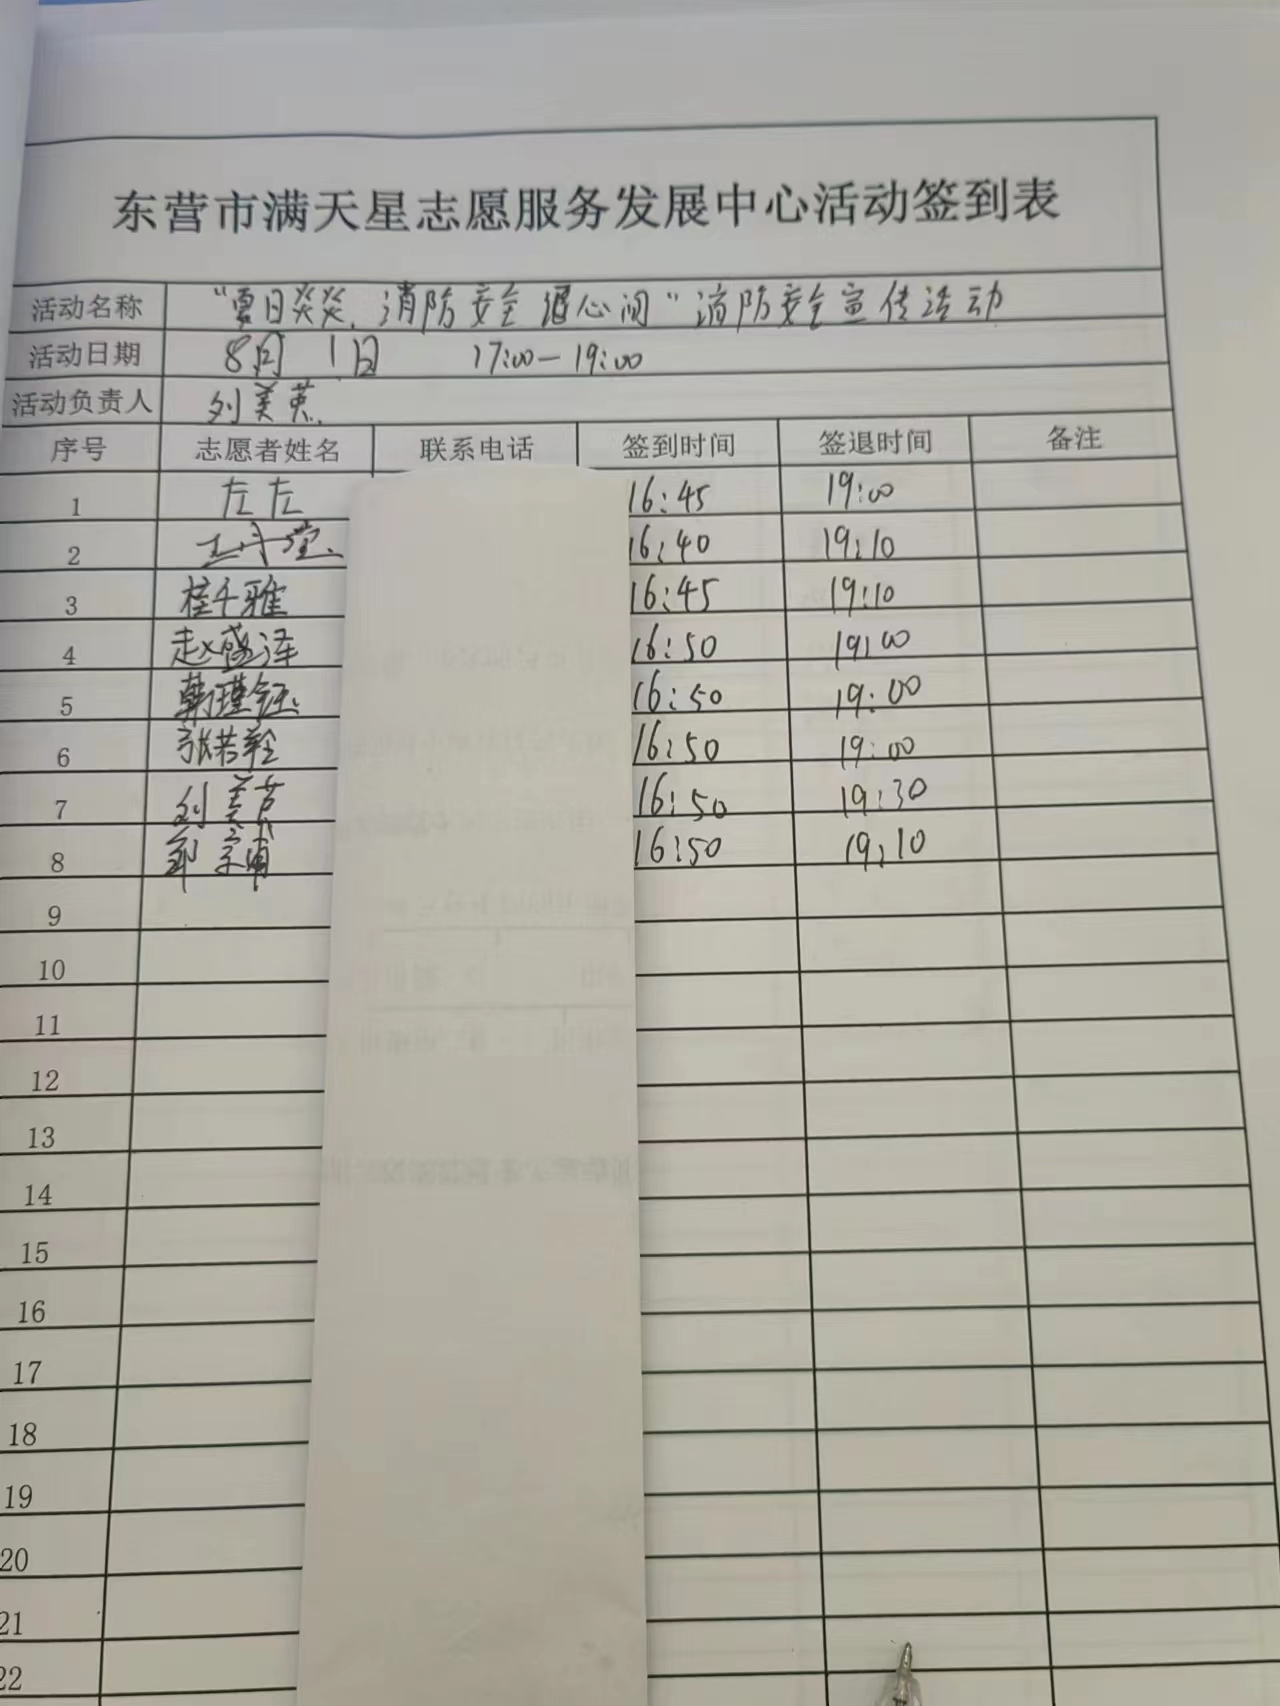 东营市满天星志愿服务发展中心活动签到表
活动名称 “夏日炎炎,消防安全 心间”消防安全宣传活动
活动日期 8月 1日 17:00—19:00
活动负责人 刘美英
序号 志愿者姓名 联系电话 签到时间 签退时间 备注
1 左左 16:45 19:00
2 16:40 19:10
3 桂千雅 16:45 19:10
4 赵盛泽 16:50 19:00
5 韩瑾钰 16:50 19:00
6 张若 16:50 19:00
7 刘美 16:50 19:30
8 16:50 19:10
9
10
11
12
13
14
15
16
17
18
19
20
21
22